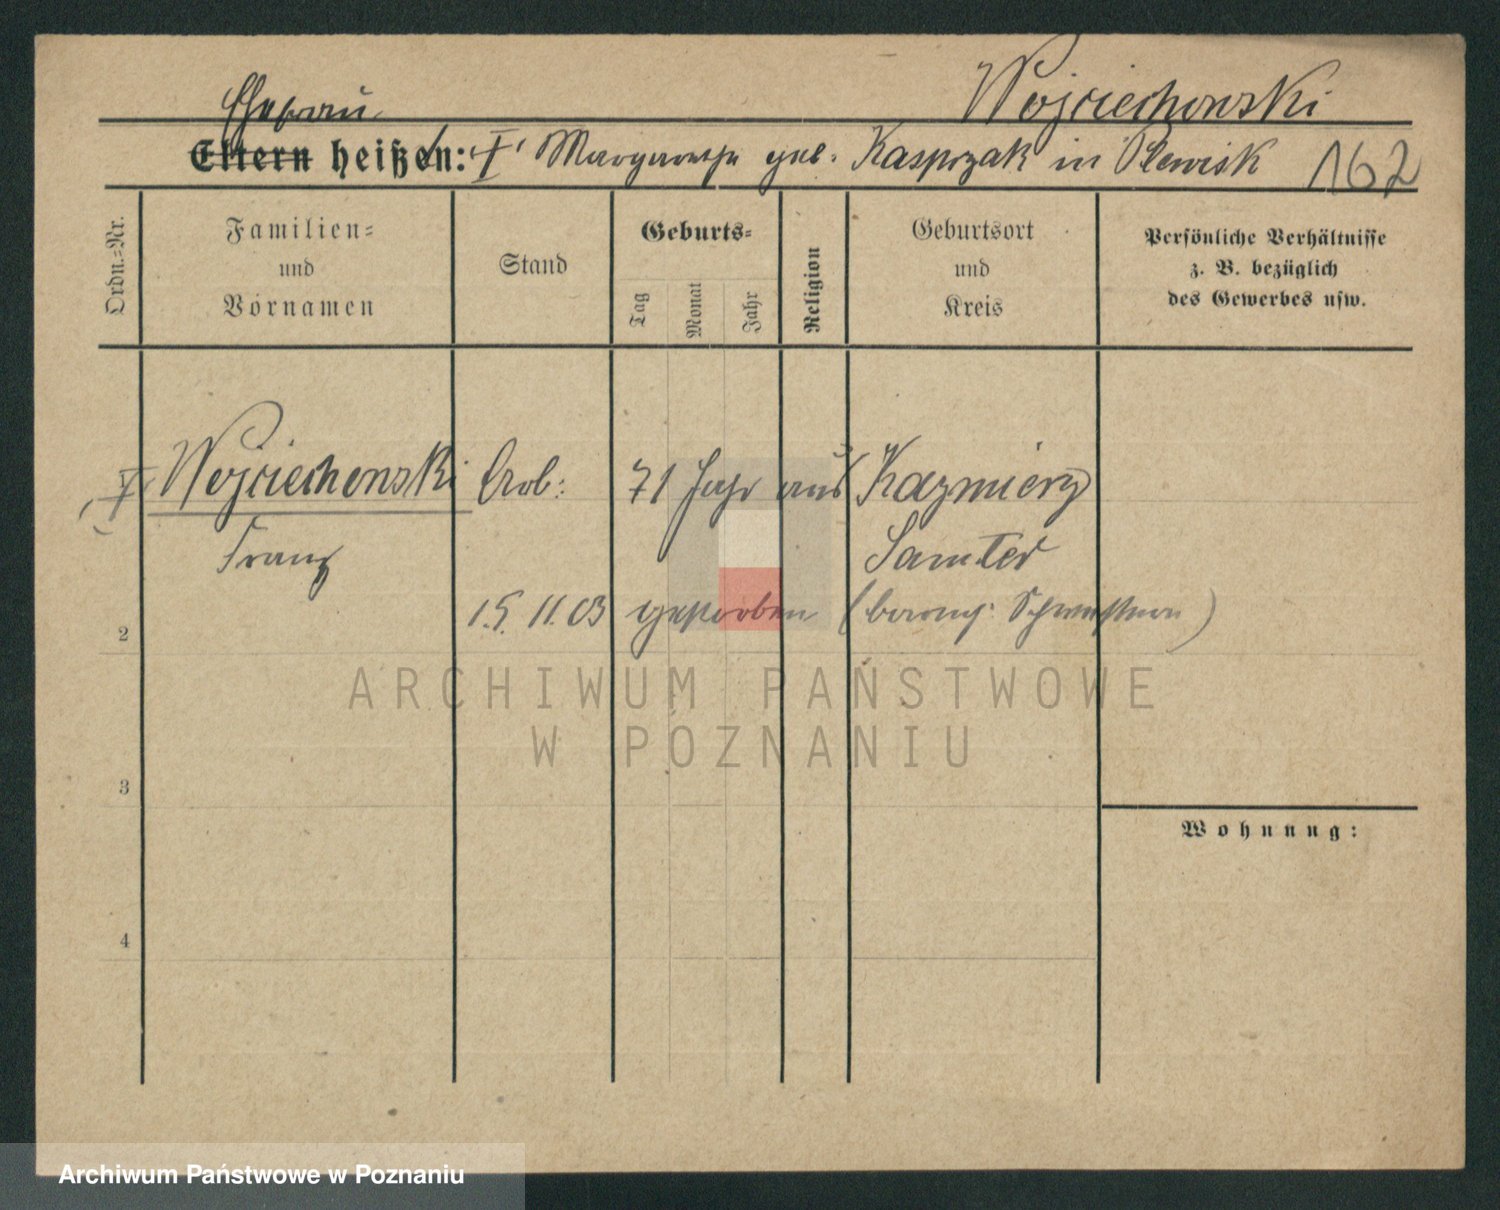 Wojciechowski
Ehefrau
Eltern heißen: "I" Margarethe geb. Kasprzak in Plewisk 162
Ordn.=Nr.
Familien=
und
Vornamen
Stand
Geburts=
Tag
Monat
Jahr
Religion
Geburtsort
und
Kreis
Persönliche Verhältnisse
z. B. bezüglich
des Gewerbes usw.
I Wojciechowski Arb: 71 Jahr aus Kazmierz
Franz Samter
15. 11. 03 gestorben
2
3
4
Wohnung:
ARCHIWUM PAŃSTWOWE
W POZNANIU
Archiwum Państwowe w Poznaniu